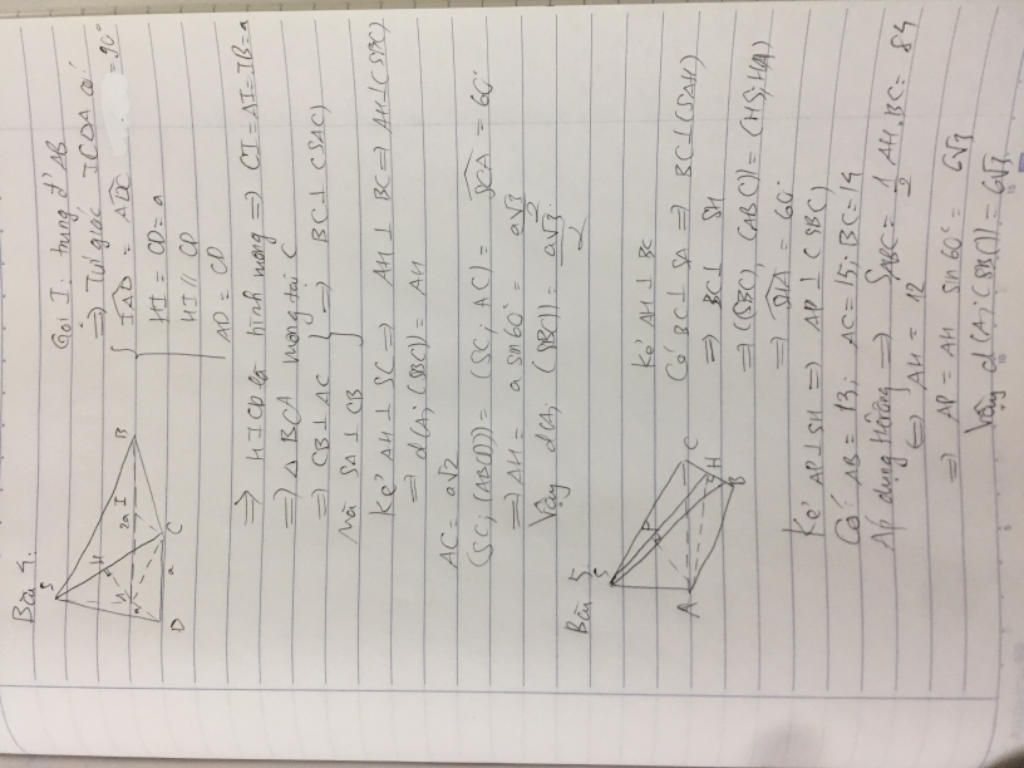 Bài 4.
S
H
A
2a
I
B
a
D
C
Gọi I: trung đ' AB
=> Tứ giác ICDA có
{ IAD = ADC = 90°
HI = CD = a
HI // CD
AD = CD
=> HICD là hình vuông => CI = AI = IB = a
=> Δ BCA vuông tại C
=> CB ⊥ AC
Mà SA ⊥ CB } => BC ⊥ (SAC)
Kẻ AH ⊥ SC => AH ⊥ BC => AH ⊥ (SBC)
=> d(A; (SBC)) = AH
AC = a√2
(SC, (ABCD)) = (SC; AC) = SCA = 60°
=> AH = a sin 60° = a√3/2
Vậy d(A; (SBC)) = a√3/2
Bài 5.
S
P
A
C
H
B
Kẻ AH ⊥ BC
Có BC ⊥ SA => BC ⊥ (SAH)
=> BC ⊥ SH
=> ((SBC), (ABC)) = (HS; HA)
=> SHA = 60°
Kẻ AP ⊥ SH => AP ⊥ (SBC)
Có AB = 13; AC = 15; BC = 14
Áp dụng Hêrông => SABC = 1/2 AH.BC = 84
<=> AH = 12
=> AP = AH sin 60° = 6√3
Vậy d(A; (SBC)) = 6√3